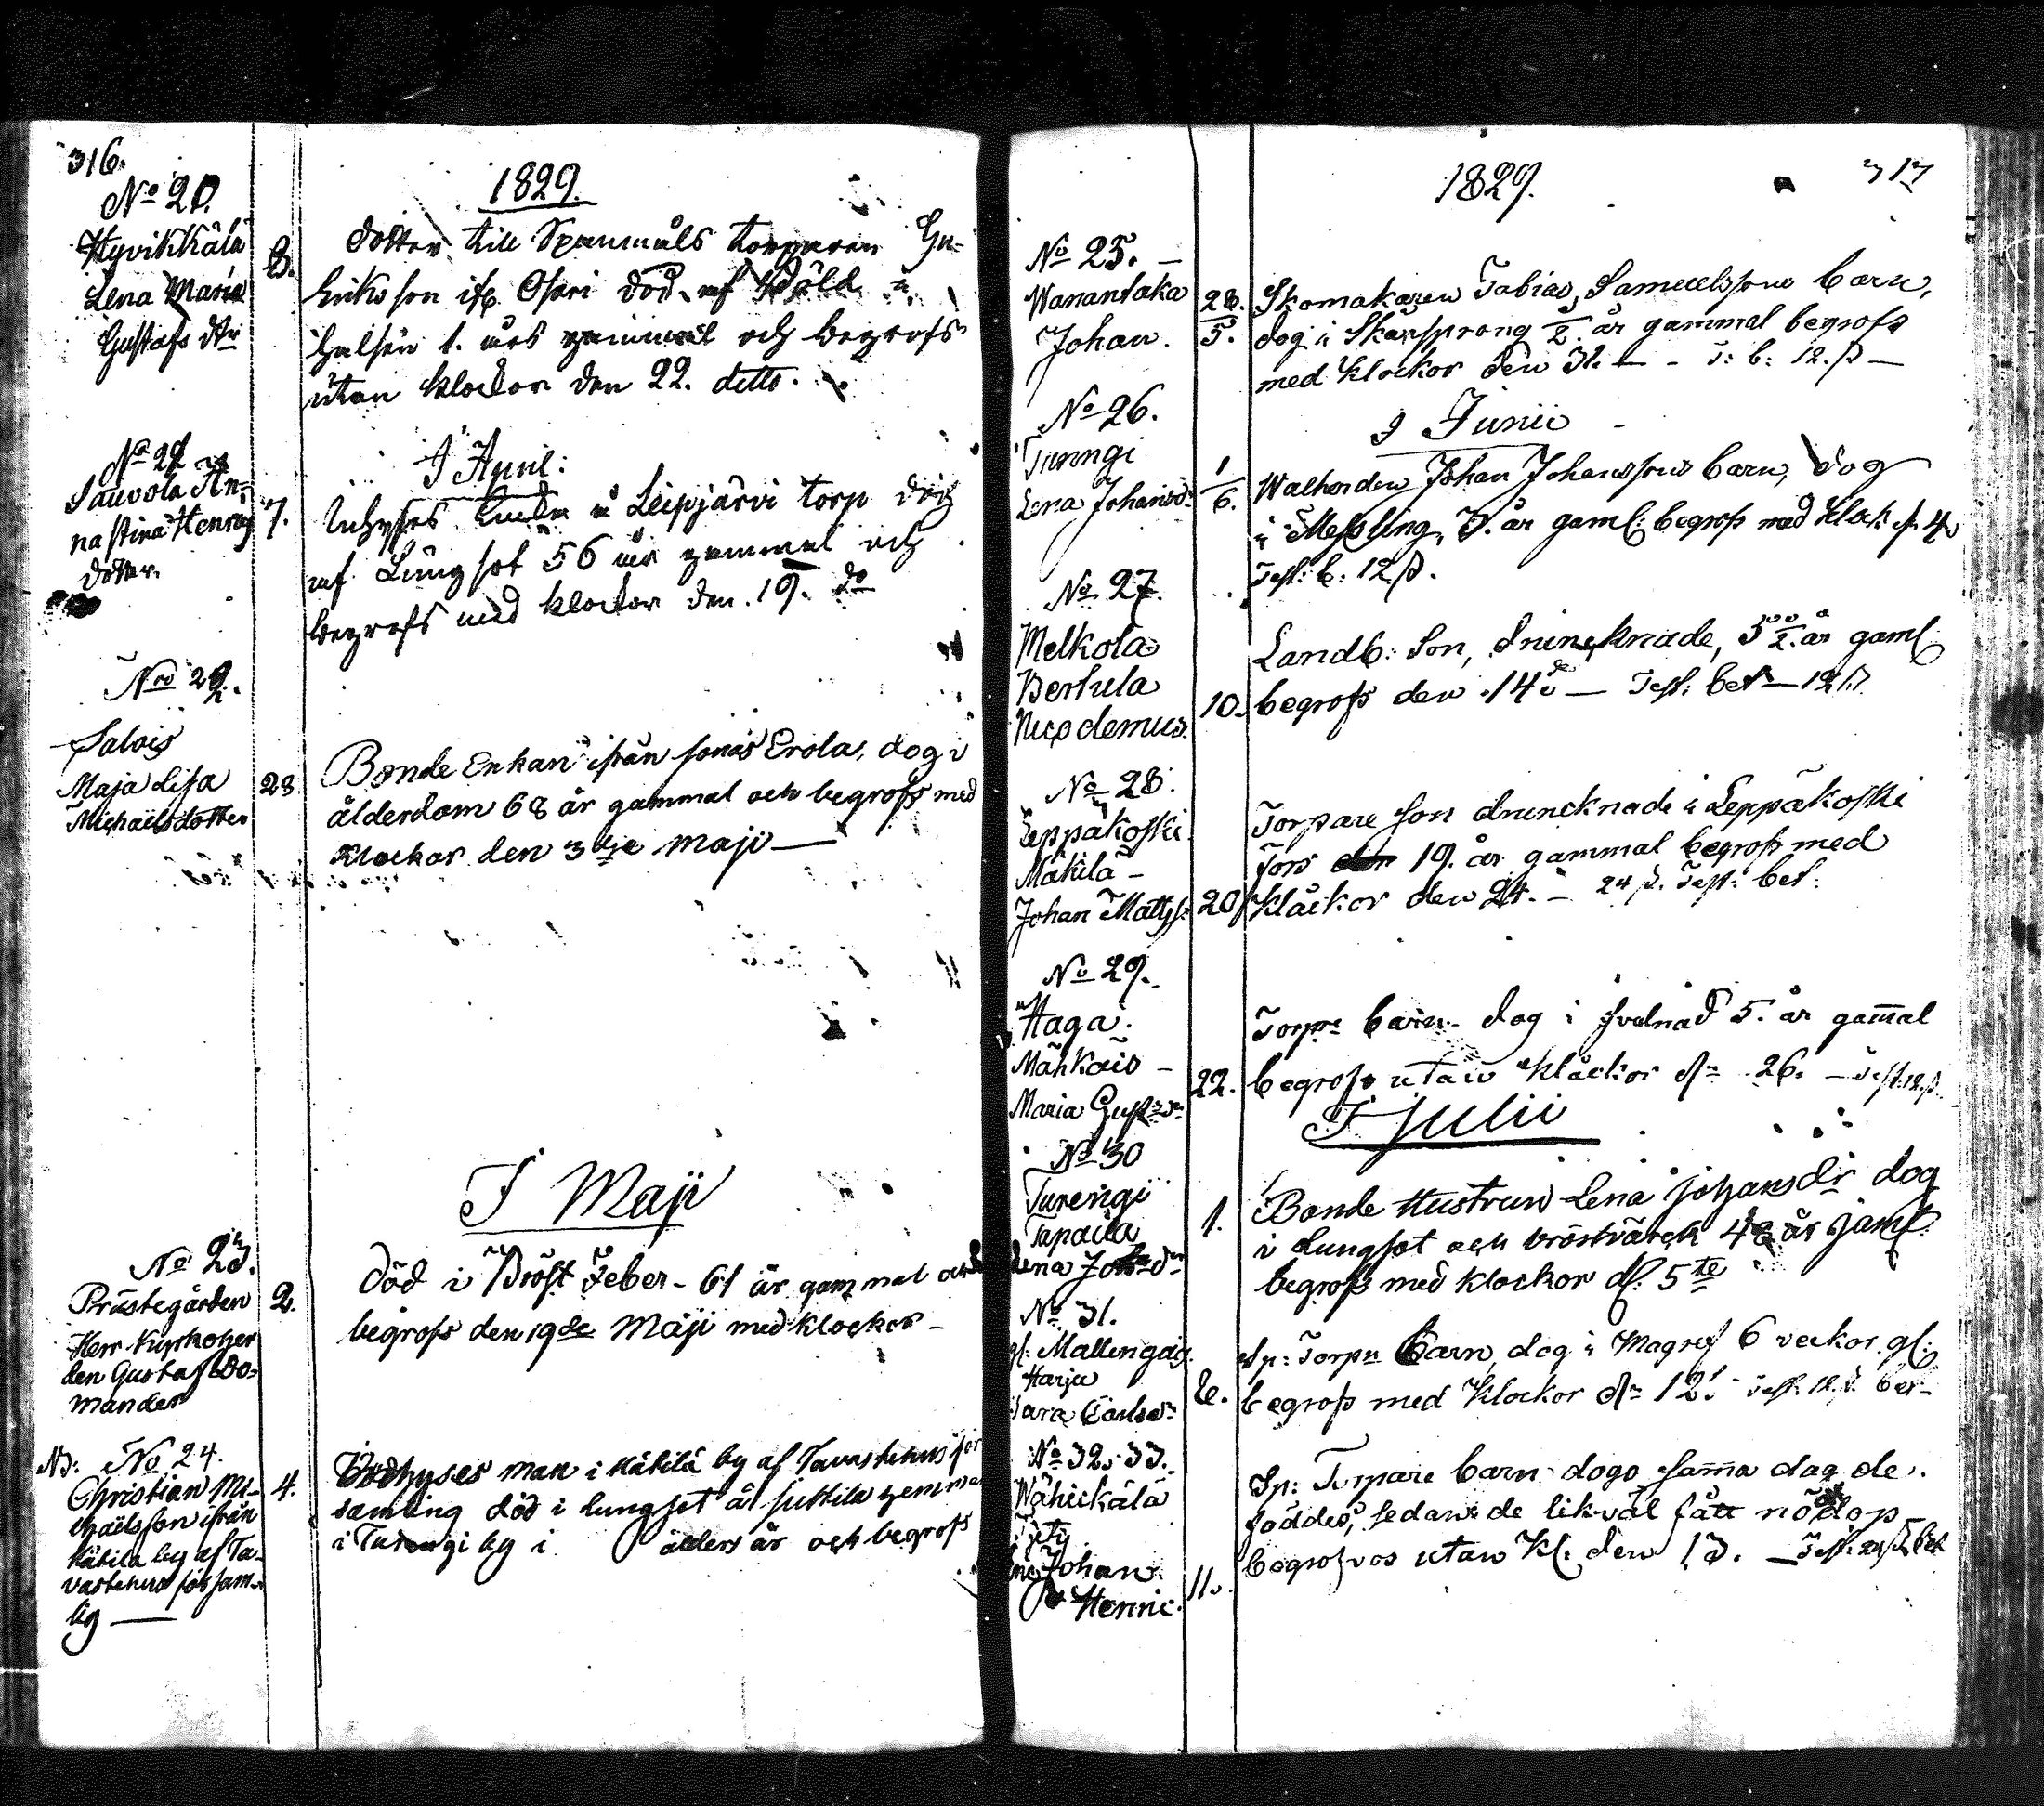 316.
1829.
No 20.
Hyvikkälä
Lena Maria
Gustafs dtr
8.
dotter till Spanmåls torparen Gu-
Eriksson
död af
1. års gammal och begrofs
utan klockor den 22. ditto.
I April:
No 21
Sauvola An-
na stina Henrics
dotter.
7.
Inhyses Enka å Leipjärvi torp dog
af Lungsot 56 år gammal och
begrofs med klockor den 19. do
Nro 22.
Salois
Maja Lisa
Michaelsdotter
28
Bonde Enkan ifrån Erola, dog i
ålderdom 68 år gammal och begrofs med
klockor den 3dje Maji —
I Maji
No 23.
Prästegården
Herr Kyrkoher
den Gustaf Bo-
mander
2.
död i Bröst Feber - 61 år gammal och
begrofs den 19de Maji med klockor -
No 24.
Christian Mi-
chaëlsson ifrån
Kätilä by af Ta-
vastehus försam-
lig —
4.
man i Kätilä by af Tavastehus för
samling död i lungsot
i Turengi by i ålders år och begrofs
1829.
317
No 25. -
Wanantaka
Johan.
28.
5.
Skomakaren Tobias Samuelssons barn,
dog i Skärsprång 1/2 år gammal begrofs
med klockor den 31. - - T: b: 12. ß -
I Junii
No 26.
Turengi
Lena Johansd:
1
6.
Walherden Johan Johanssons barn, dog
i Messling, 7. år gaml: begrofs med klok: d. 4.
Test: b: 12 ß.
No 27.
Melkola
Bertula
Nicodemus.
10.
Landb: Son, drunknade, 3 1/2 år gaml
begrofs den 14de — Test: bet — 12 ß
No 28.
Leppäkoski
Mäkilä -
Johan Mattss:
20
Torpare son druncknade i Leppäkoski
fors 19. år gammal begrofs med
klåckor den 24. - 24 ß. Test: bet:
No 29.
Haga.
Mähkäis -
Maria Gust: dr
22.
Torpr barn dog i svulnad 5. år gamal
begrofs utan klåckor dn 26. - Test: 12. ß
I Julii
No 30
Turengi
Tapaila
Lena Joh: dr
1.
Bonde Hustrun Lena Johansdr dog
i Lungsot och bröstvärck år gaml
begrofs med klockor d. 5te
No 31.
Mallengag.
Harju
Sara Carlsdr
Sp: Torpr barn, dog i Magref 6 veckor gl:
begrofs med klockor dn 12. Test: 12 ß bet-
No 32. 33.
Wähickälä
Johan
Henric.
11.
Sp: Torpare barn dogo sama dag de
föddes, sedan de likväl fått nöddop
begrofvos utan kl: den 13. - Test: 24 ß bet